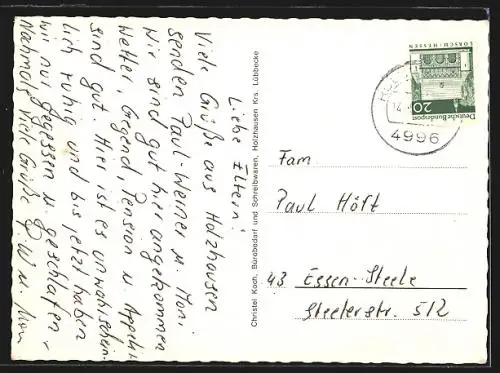 Liebe Eltern!
Viele Grüße aus Holzhausen
senden Paul-Werner u. Moni
Wir sind gut hier angekommen
Wetter, Gegend, Pension u. Appetit
sind gut. Hier ist es unwahrschein-
lich ruhig und bis jetzt haben
wir nur gegessen u. geschlafen.
Nochmals Viele Grüße P W u. Moni
Christel Koch, Bürobedarf und Schreibwaren, Holzhausen Krs. Lübbecke
LORSCH · HESSEN
20
Deutsche Bundespost
4996
Fam
Paul Höft
43 Essen-Steele
Steelerstr. 512